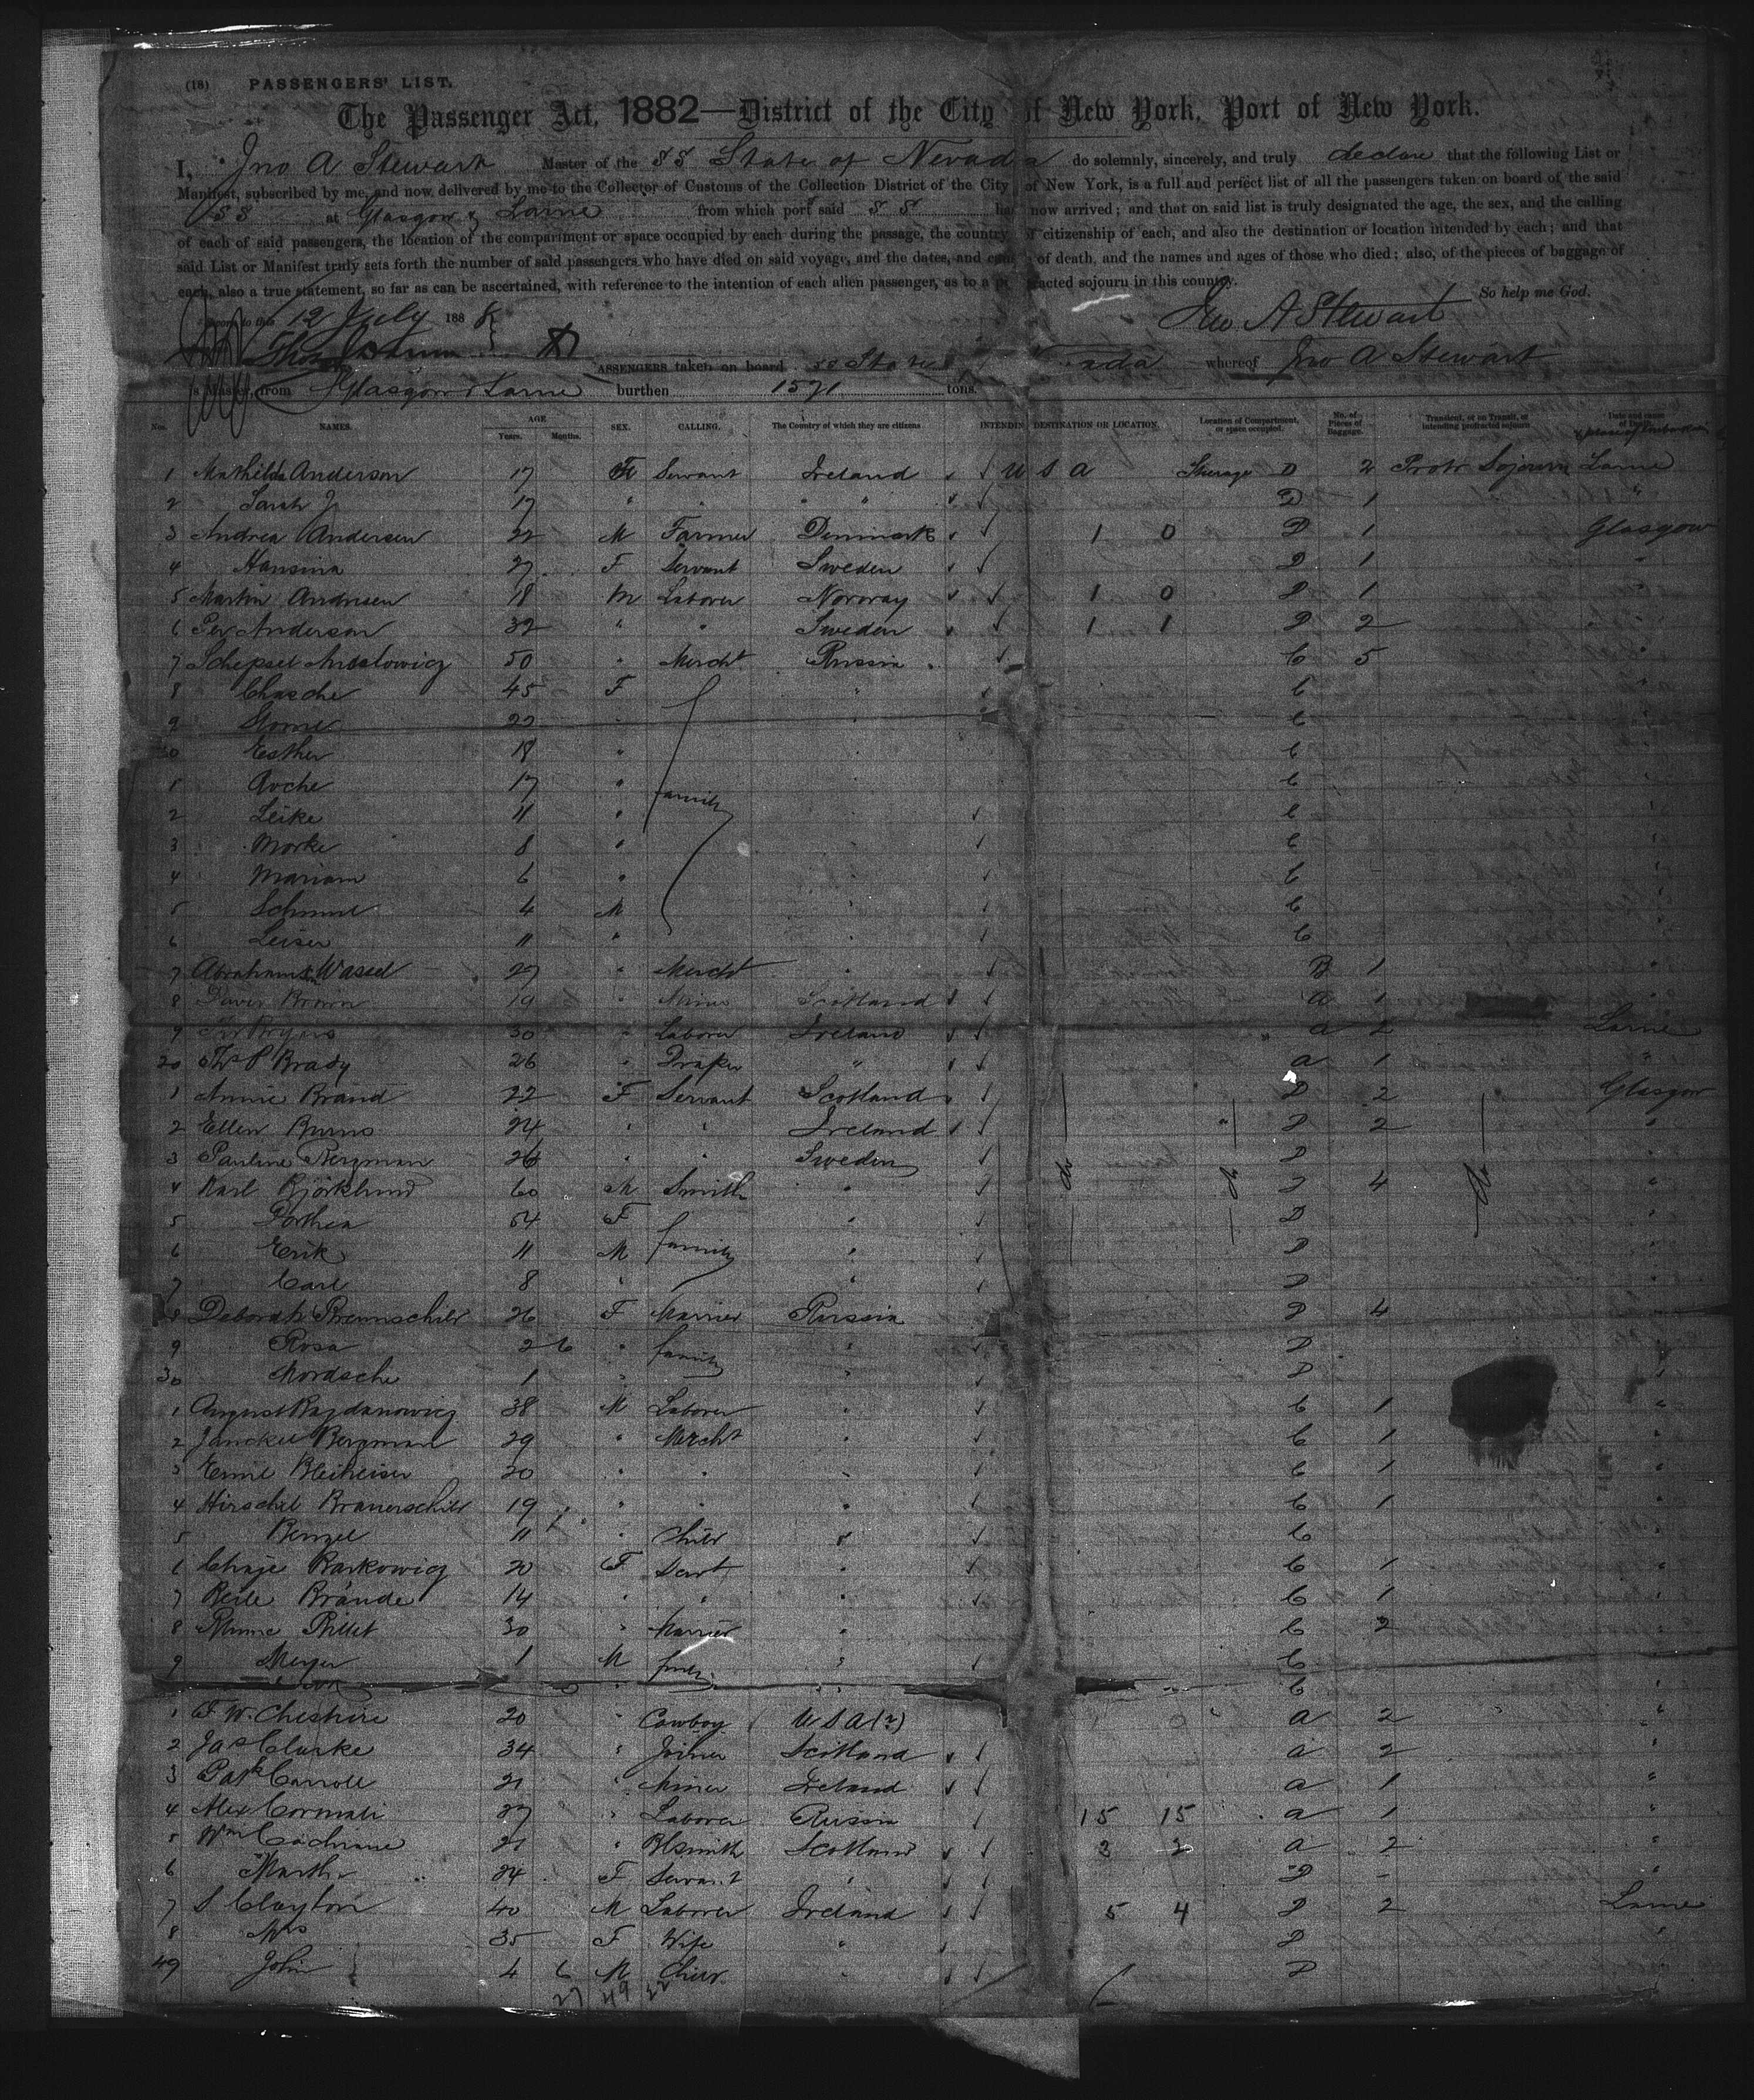 (18) PASSENGERS' LIST.
The Passenger Act, 1882—District of the City of New York, Port of New York.
I, Jno A Stewart Master of the SS State of Nevada do solemnly, sincerely, and truly declare that the following List or
Manifest, subscribed by me, and now delivered by me to the Collector of Customs of the Collection District of the City of New York, is a full and perfect list of all the passengers taken on board of the said
SS at Glasgow & Larne from which port said SS has now arrived; and that on said list is truly designated the age, the sex, and the calling
of each of said passengers, the location of the compartment or space occupied by each during the passage, the country of citizenship of each, and also the destination or location intended by each; and that
said List or Manifest truly sets forth the number of said passengers who have died on said voyage, and the dates, and cause of death, and the names and ages of those who died; also, of the pieces of baggage of
each, also a true statement, so far as can be ascertained, with reference to the intention of each alien passenger, as to a protracted sojourn in this country. So help me God.
Sworn to this 12 July 1888 Jno A Stewart
PASSENGERS taken on board SS State ada whereof Jno A Stewart
is Master, from Glasgow & Larne burthen 1571 tons.
Nos. NAMES. AGE Years. Months. SEX. CALLING. The Country of which they are citizens INTENDING DESTINATION OR LOCATION. Location of Compartment, or space occupied. No. of Pieces of Baggage. Transient, or on Transit, or intending protracted sojourn Date and cause of Death & place of Embarkation
1 Mathilda Anderson 17 F Servant Ireland U S A Steerage D 2 Protr Sojourn Larne
2 Sarah J 17 " " " D 1 "
3 Andrea Andersen 22 M Farmer Denmark 1 0 D 1 Glasgow
4 Hansina 27 F Servant Sweden D 1 "
5 Martin Andresen 18 M Laborer Norway 1 0 D 1 "
6 Per Anderson 32 " " Sweden 1 1 D 2 "
7 Schepsel 50 " Mercht Russia C 5 "
8 Chasche 45 F " C "
9 22 " " C "
10 Esther 18 " C "
1 Asche 17 " family C "
2 Leike 11 " C "
3 Morke 8 " C "
4 Mariam 6 " C "
5 Schmul 4 M C "
6 Leiser 11 " C "
7 Abraham Wassel 27 " Mercht " B 1 "
8 Brown 19 " Miner Scotland A 1
9 30 " Laborer Ireland A 2 Larne
20 P Brady 26 " Draper " A 1 "
1 Annie Brand 22 F Servant Scotland D 2 Glasgow
2 Ellen Burns 24 " " Ireland D 2 "
3 Pauline Bergman 26 " " Sweden D "
4 Karl Björklund 60 M Smith " do do D 4 do "
5 Dorthea 54 F " D "
6 Erik 11 M family " D "
7 Carl 8 " " D "
8 Deborah 26 F Married Russia D 4 "
9 Rosa 2 6 " family " D "
30 Mordsche 1 " " D "
1 August Bogdanowicz 38 M Laborer " C 1 "
2 Janckel Bergman 29 " Mercht " C 1 "
3 Emil Bleiheiser 20 " " " C 1 "
4 Hirschel Brauerschild 19 " " " C 1 "
5 Benzel 11 " Child " C
6 Chaje Barkowicz 20 F Servt " C 1 "
7 Beile Brande 14 " " " C 1 "
8 Billet 30 " Married " C 2 "
9 Meyer 1 M " C "
C "
1 F. W. Cheshire 20 " Cowboy USA (?) A 2 "
2 Jas Clarke 34 " Joiner Scotland A 2 "
3 Patk Carroll 21 " Miner Ireland A 1 "
4 Alex Cormali 27 " Laborer Russia 15 15 A 1 "
5 Wm Cochrane 21 " Blsmith Scotland 3 2 A 2 "
6 Martha 24 F Servant " D - "
7 S Clayton 40 M Laborer Ireland 5 4 D 2 Larne
8 Mrs 35 F Wife " D "
49 John 4 6 M Child " D
27 49 22